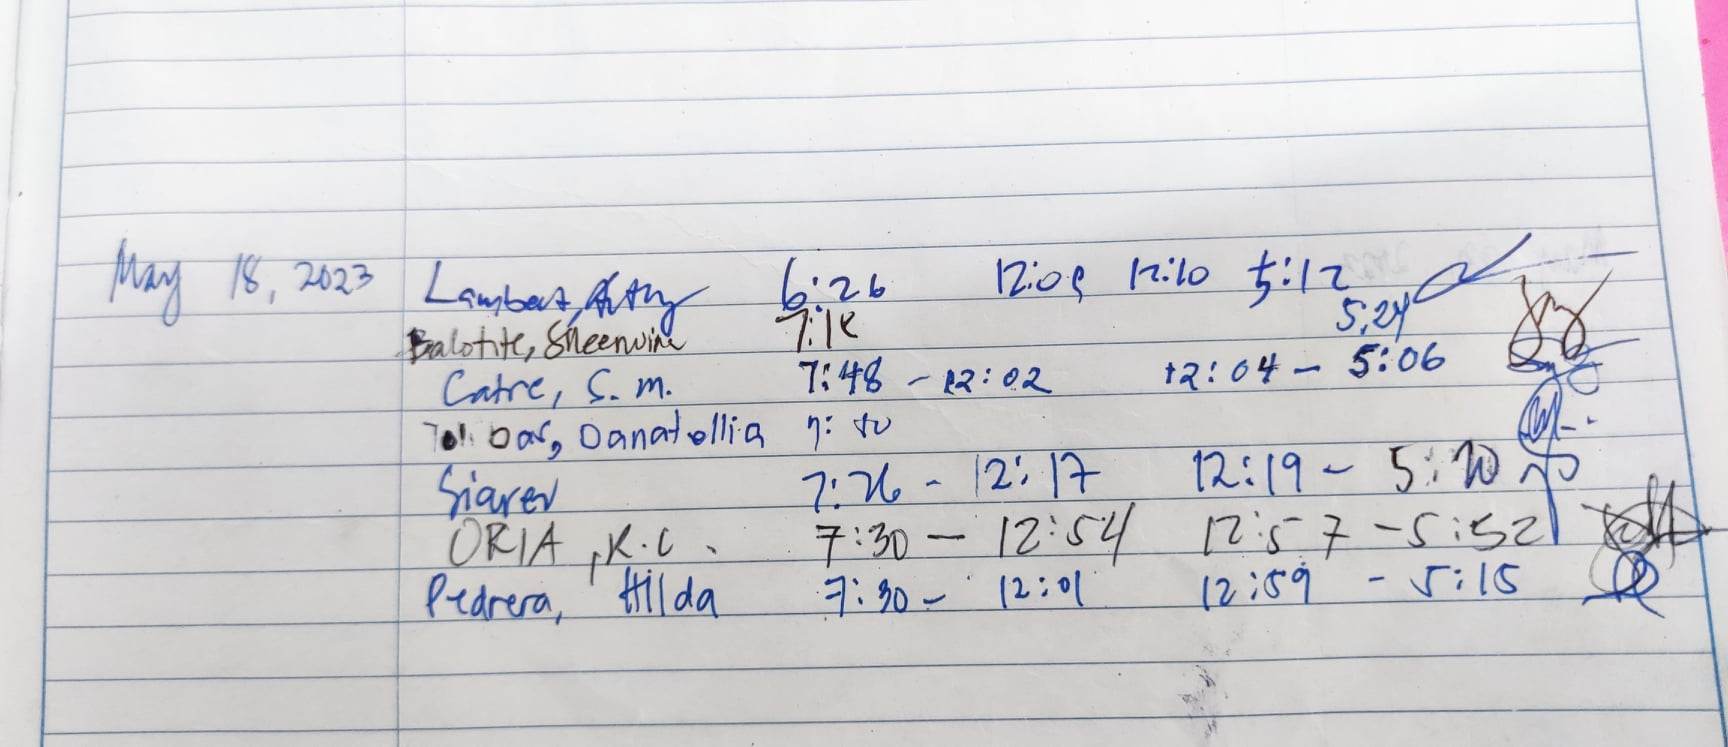 May 18, 2023 Lambert, 6:26 12:08 12:10 5:12
Balotite, Sheenwina 7:18 5:24
Catre, S. M. 7:48 - 12:02 12:04 - 5:06
Danatellia 7:
Siarez 7:26 - 12:17 12:19 - 5:20
ORIA, K.C. 7:30 - 12:54 12:57 - 5:52
Pedrera, Hilda 7:30 - 12:01 12:59 - 5:15